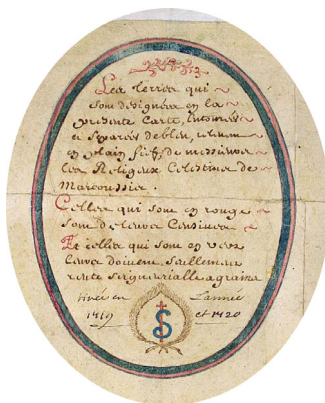 Les terres qui
sont designées en la
presente Carte, entourées
et separés de bleu, relevent
en plain fief de messieurs
les Religieux Celestins de
Marcoussis.
Celles qui sont en rouge
sont de leurs Censives
Et celles qui sont en vert
leurs doivent seullement
rente seigneurialle a grains
tirée en l'année
1719 et 1720
S